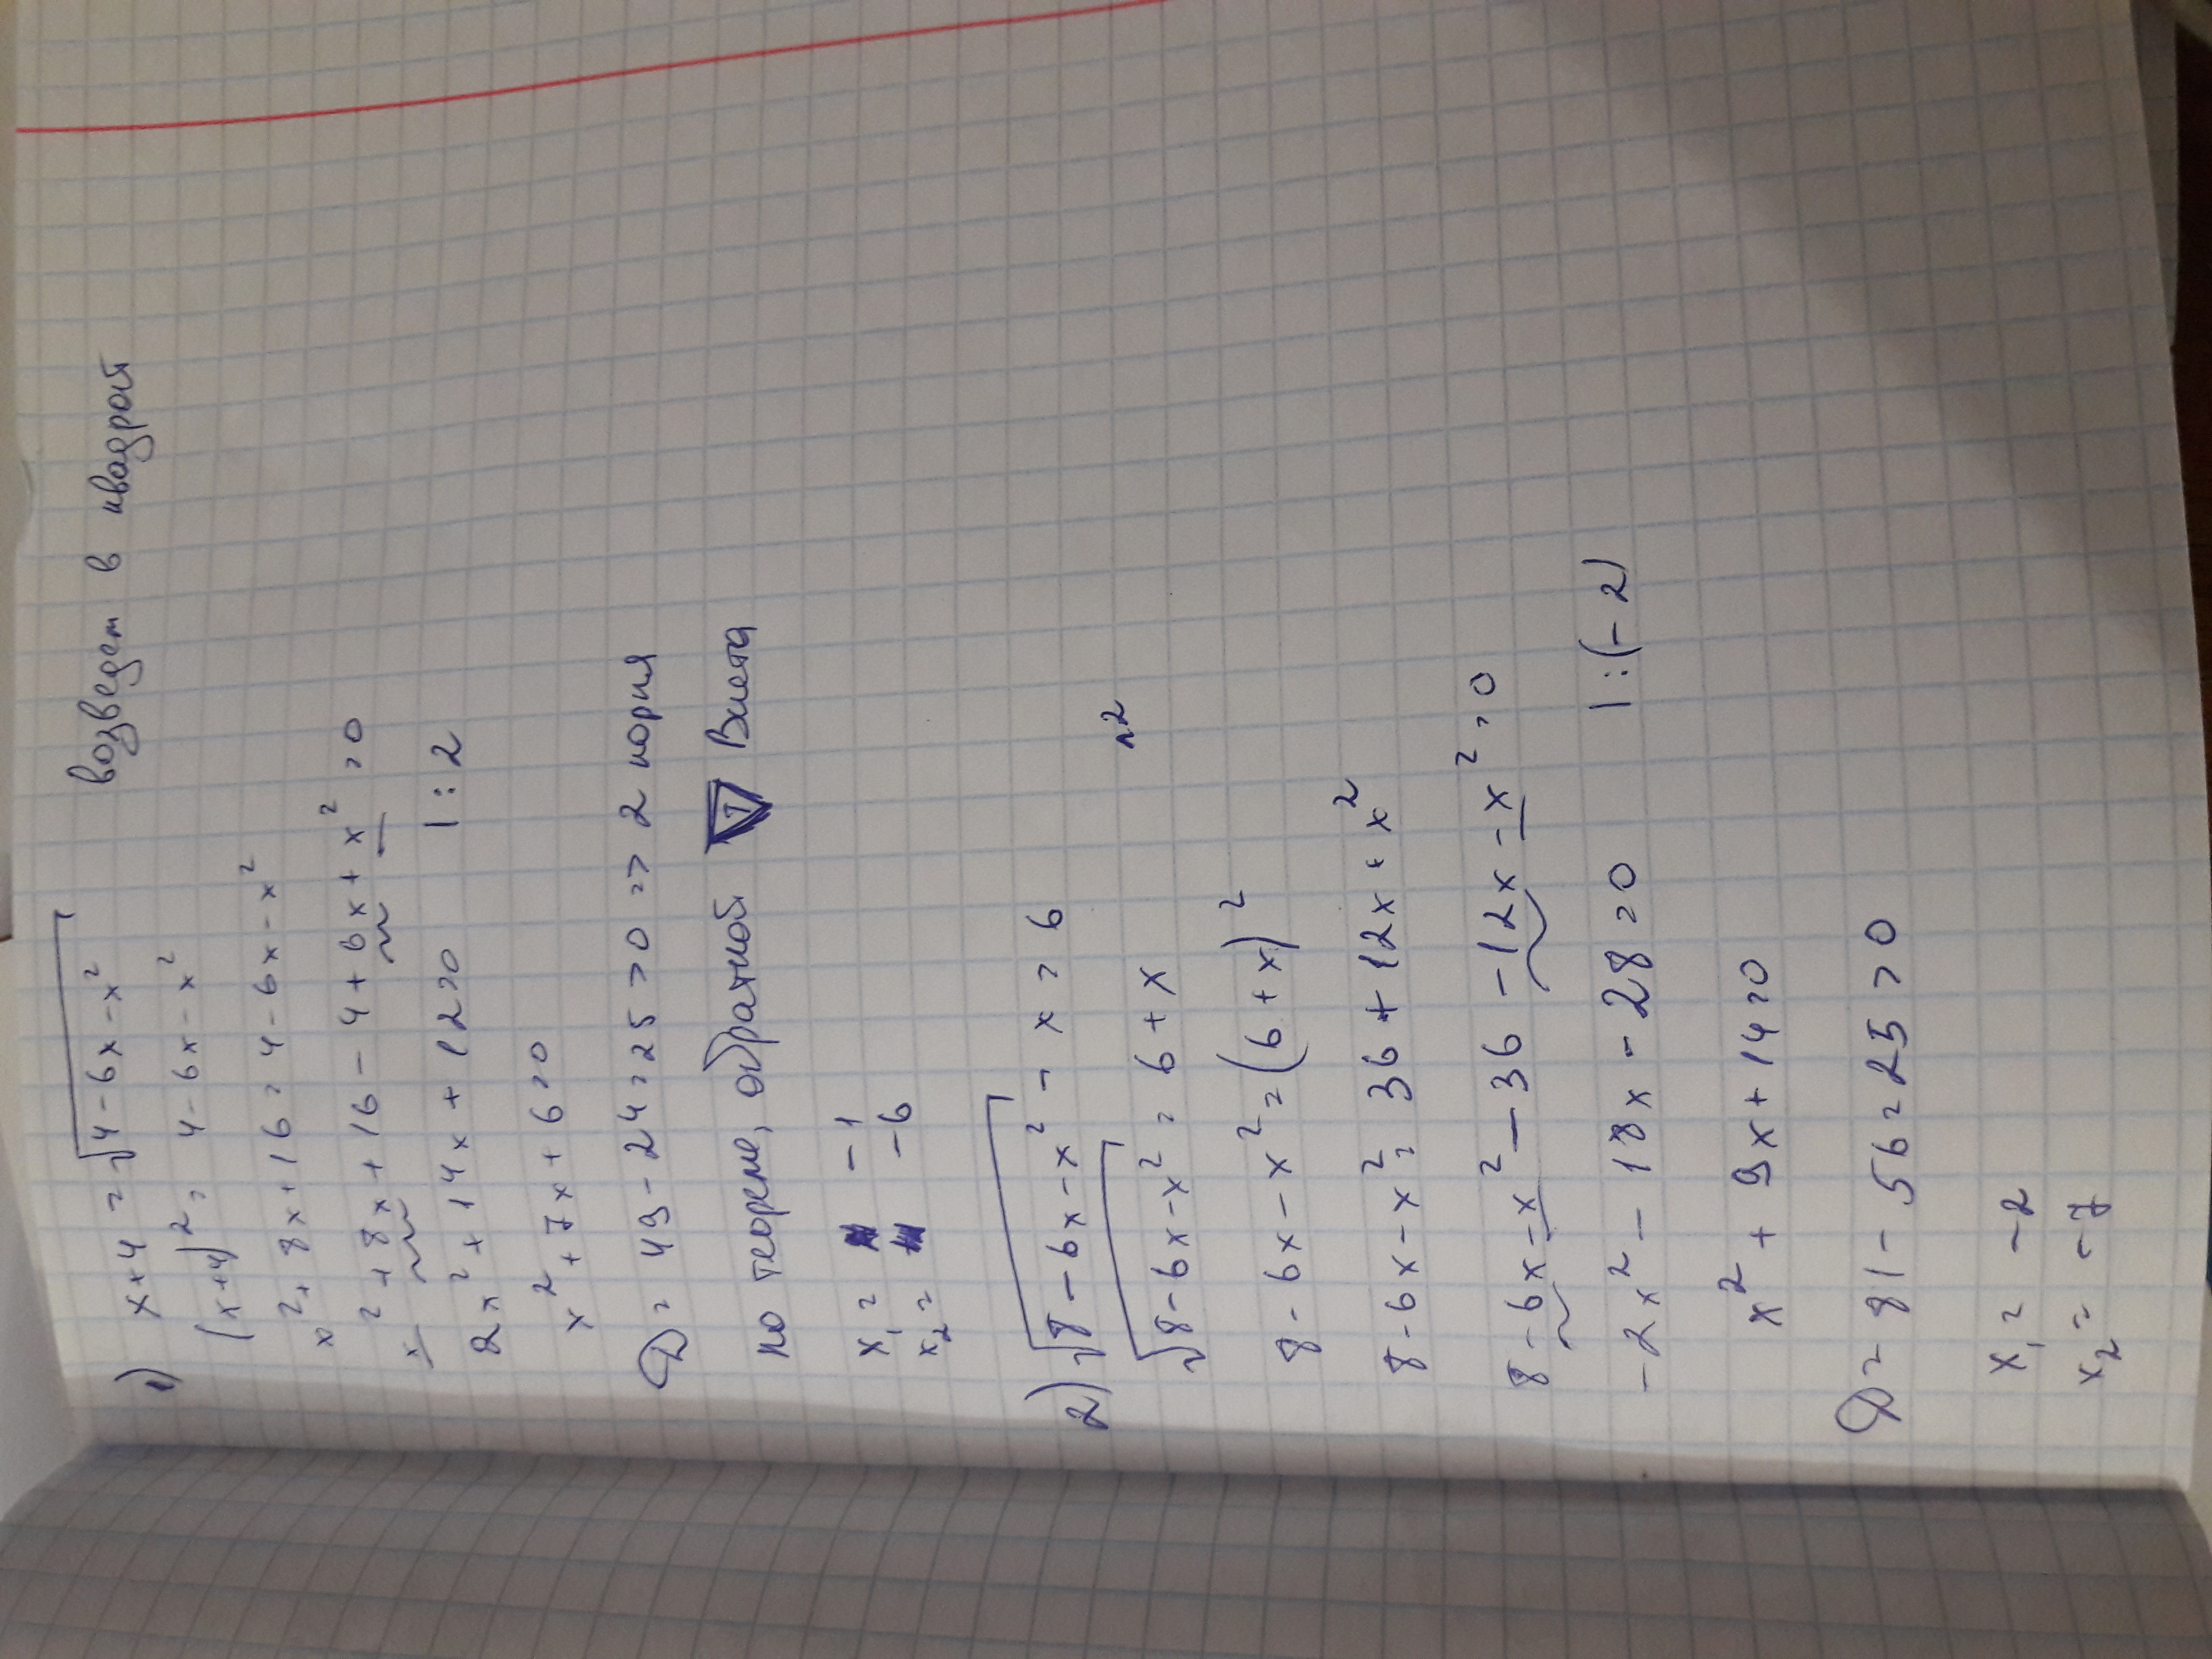 1) x+4 = √4-6x-x² возведем в квадрат
(x+4)² = 4-6x-x²
x²+8x+16=4-6x-x²
x²+8x+16-4+6x+x²=0
2x²+14x+12=0 |:2
x²+7x+6=0
D=49-24=25>0 => 2 корня
по теореме, обратной т Виета
x₁= -1
x₂= -6
2) √8-6x-x² - x = 6
√8-6x-x² = 6+x ^2
8-6x-x²=(6+x)²
8-6x-x²=36+12x+x²
8-6x-x²-36-12x-x²=0
-2x²-18x-28=0 |:(-2)
x²+9x+14=0
D=81-56=25>0
x₁= -2
x₂= -7